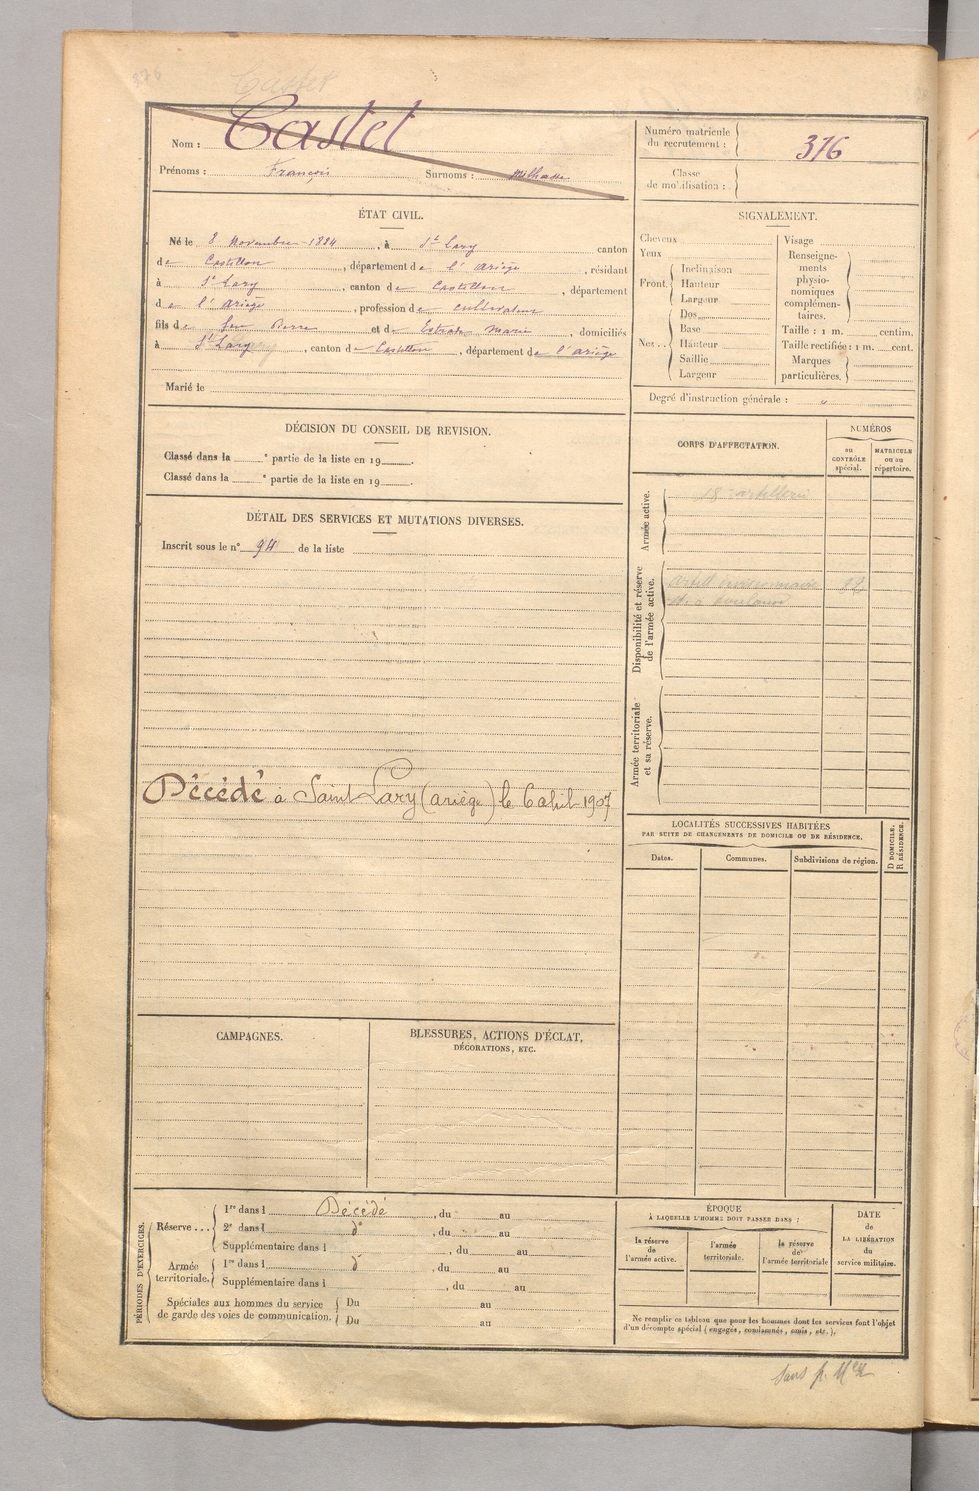 376
Castet
Nom : Castet
Prénoms : François Surnoms : Milhasse
Numéro matricule du recrutement : 376
Classe de mobilisation :
ÉTAT CIVIL.
Né le 8 Novembre 1884, à St Lary canton
de Castillon, département de l'Ariège, résidant
à St Lary, canton de Castillon, département
de l'Ariège, profession de cultivateur
fils de Jean Pierre et de Estrade Marie, domiciliés
à St Lary, canton de Castillon, département de l'Ariège
Marié le
SIGNALEMENT.
Cheveux
Yeux
Front. Inclinaison
Hauteur
Largeur
Nez.. Dos
Base
Hauteur
Saillie
Largeur
Visage
Renseigne-
ments
physio-
nomiques
complémen-
taires.
Taille : 1 m. centim.
Taille rectifiée : 1 m. cent.
Marques
particulières.
Degré d'instruction générale : "
DÉCISION DU CONSEIL DE REVISION.
Classé dans la e partie de la liste en 19 .
Classé dans la e partie de la liste en 19 .
DÉTAIL DES SERVICES ET MUTATIONS DIVERSES.
Inscrit sous le n° 94 de la liste
Décédé à Saint Lary (ariège) le 6 abil 1907
CORPS D'AFFECTATION.
NUMÉROS
au CONTRÔLE spécial.
MATRICULE ou au répertoire.
Armée active.
18 artillerie
Disponibilité et réserve de l'armée active.
Armée territoriale et sa réserve.
LOCALITÉS SUCCESSIVES HABITÉES
PAR SUITE DE CHANGEMENTS DE DOMICILE OU DE RÉSIDENCE.
Dates.
Communes.
Subdivisions de région.
D DOMICILE,
R RÉSIDENCE.
CAMPAGNES.
BLESSURES, ACTIONS D'ÉCLAT,
DÉCORATIONS, ETC.
PÉRIODES D'EXERCICES.
Réserve... 1re dans l Décédé, du au
2e dans l do, du au
Supplémentaire dans l , du au
Armée territoriale. 1re dans l do, du au
Supplémentaire dans l , du au
Spéciales aux hommes du service
de garde des voies de communication. Du au
Du au
ÉPOQUE
À LAQUELLE L'HOMME DOIT PASSER DANS :
la réserve de l'armée active.
l'armée territoriale.
la réserve de l'armée territoriale
DATE
de
LA LIBÉRATION
du
service militaire.
Ne remplir ce tableau que pour les hommes dont les services font l'objet
d'un décompte spécial (engagés, condamnés, omis, etc.).